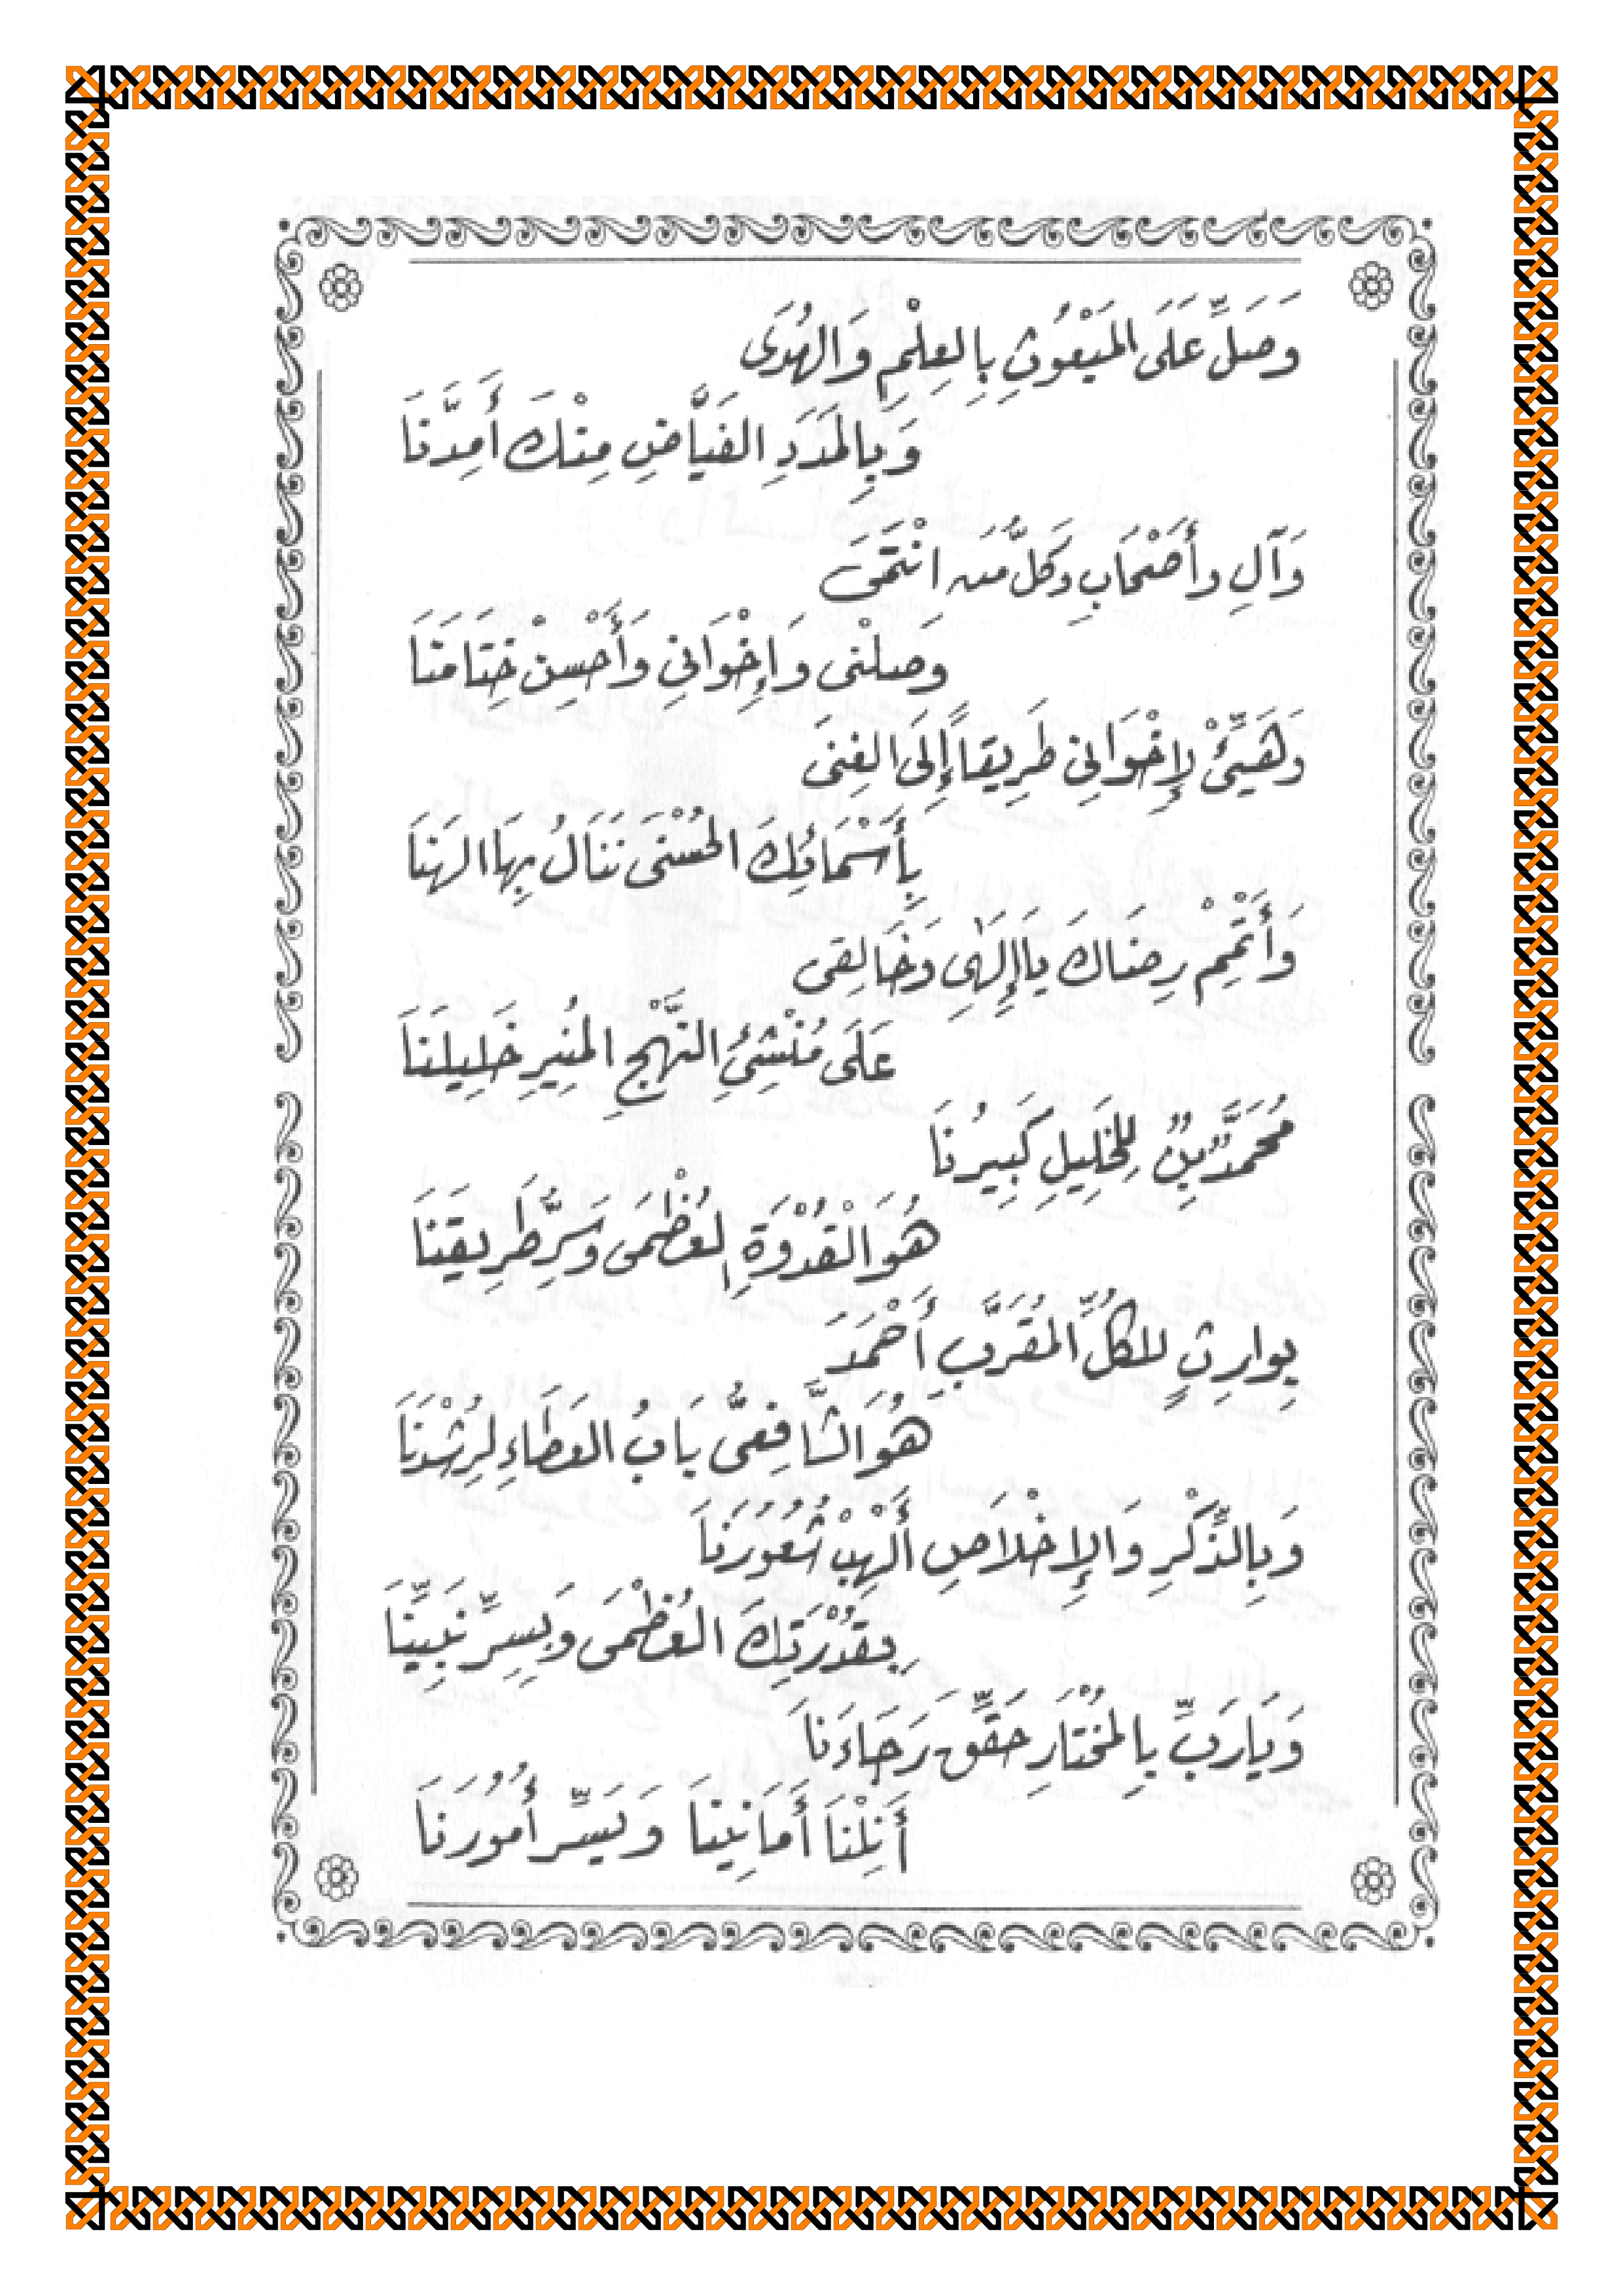 وَصَلِّ عَلَى المَبْعُوثِ بِالعِلْمِ وَالهُدَى
وَبِالمَدَدِ الفَيَّاضِ مِنْكَ أَمِدَّنَا
وَآلِ وأَصْحَابِ وَكلِّ مَن انْتَمَى
وَصلْنى وَإِخْوَانِي وَأَحْسِنْ خِتَامَنَا
وَهَيِّئْ لِإِخْوَانِي طَرِيقاً إِلَى الغِنَى
بِأَسْمَائِكَ الحُسْنَى نَنَالُ بِهَا الهَنَا
وَأَتْمِمْ رِضَاكَ يَا إِلَهِى وَخَالِقِى
عَلَى مُنْشِئِ النَّهْجِ المُنِيرِ خَلِيلَنَا
مُحَمَّدٌ بْنٌ لِلخَلِيلِ كَبِيرُنَا
هُوَ الْقُدْوَةِ لعُظْمَى وَسِرُّ طَرِيقِنَا
بِوارِثٍ للكُلِّ المُقَرَّبِ أَحْمَدَ
هُوَ الشَّافِعىُّ بَابُ العَطَاءِ لِرُشْدِنَا
وَبِالذِّكْرِ وَالإِخْلاَصِ أَلْهِبْ شُعُورَنَا
بِقُدْرَتِكَ العُظْمَى وَبِسِرِّ نَبِيِّنَا
وَيَارَبِّ بِالمُخْتَارِ حَقِّق رَجَاءَنَا
أَنِلْنَا أَمَانِينَا وَيَسِّر أُمُورَنَا